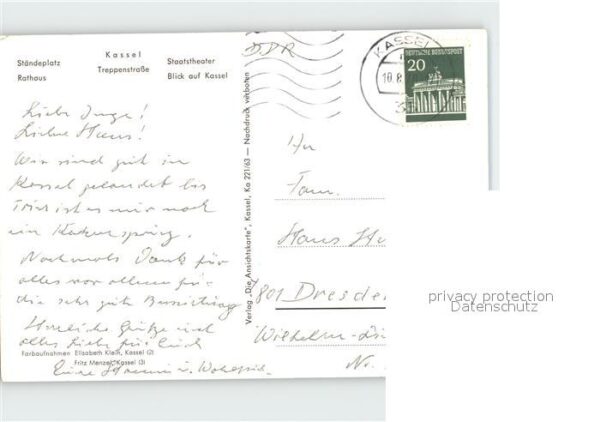 Kassel
Ständeplatz Staatstheater
Treppenstraße
Rathaus Blick auf Kassel
Liebe Inge!
Lieber Hans!
Wir sind gut in
Kassel gelandet bis
ist es nur noch
ein Katzensprung.
Nochmals Dank für
alles vor allem für
die sehr gute Bewirtung
Herzliche Grüße und
alles Liebe für Euch
Farbaufnahmen: Elisabeth Klein, Kassel (2)
Fritz Menzel, Kassel (3)
Eure u.
Verlag „Die Ansichtskarte", Kassel, Ka 221/63 — Nachdruck verboten
DDR
KASSEL
10.8.
DEUTSCHE BUNDESPOST
20
An
Fam.
Hans
801 Dresde
Wilhelm-
Nr.
privacy protection
Datenschutz